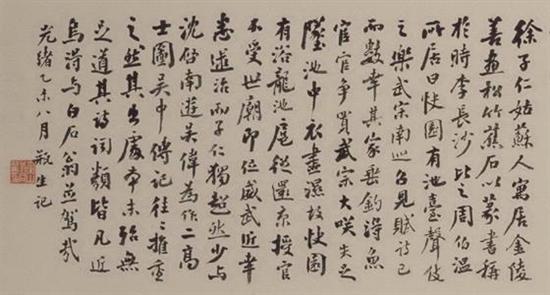 徐子仁姑蘇人寓居金陵
善畫松竹蕉石以篆書稱
於時李長沙比之周伯溫
所居曰快園有池臺聲伎
之樂武宗南巡召見賦詩已
而數幸其家垂釣得魚
宦官争買武宗大咲失足
墜池中衣盡濕故快園
有浴龍池扈從還京授官
不受世廟即位威武近幸
悉逮治而子仁獨超然少与
沈啓南遊吳偉為作二高
士圖吴中傳記往々推重
之然其出處本末殆無
足道其詩詞類皆凡近
烏得与白石翁並駕哉
光緒乙未八月瓶生記